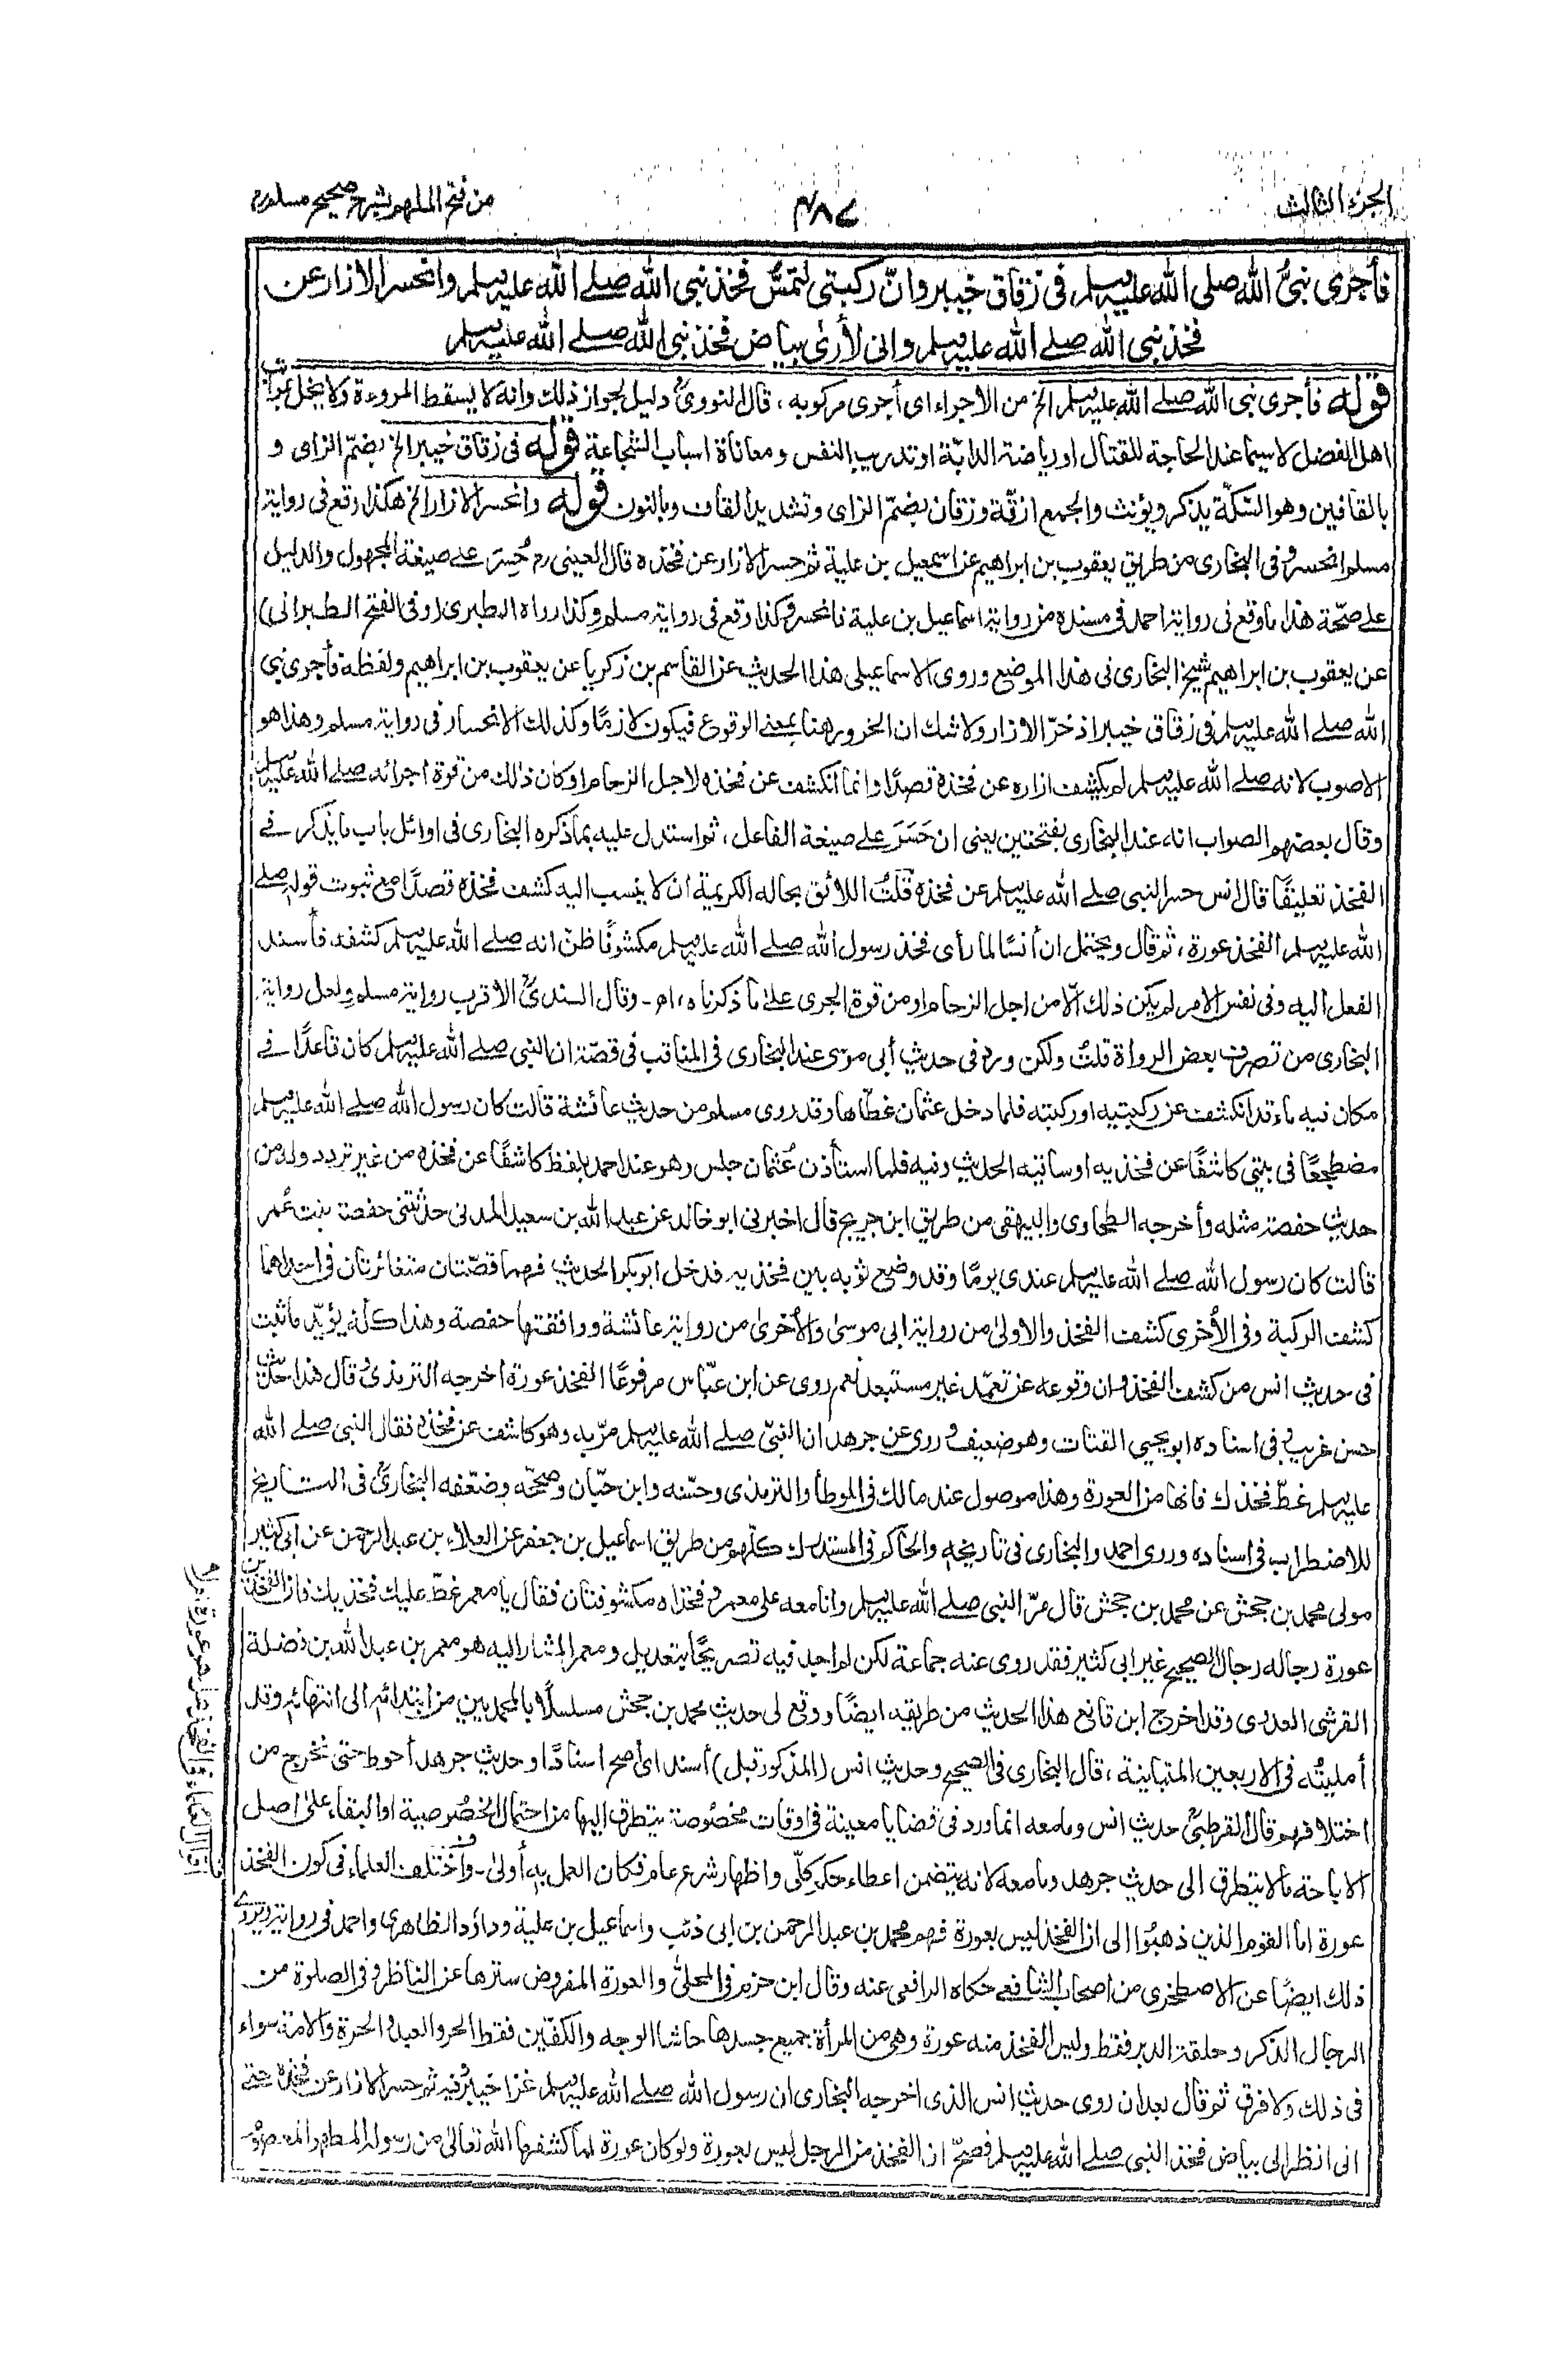 الجزء الثالث
٤٨٧
من فتح الملهم بشرح صحيح مسلم
فأجرى نبيُّ الله صلى الله عليه وسلم في زقاق خيبر وانّ ركبتي لتمسُّ فخذ نبي الله صلے الله عليه وسلم وانحسر الازار عن
فخذ نبي الله صلے الله عليه وسلم واني لأرىٰ بياض فخذ نبي الله صلے الله عليه وسلم
قوله فأجرى نبي الله صلے الله عليه وسلم الخ من الاجراء اى أجرى مركوبه ، قال النوويؒ دليل لجواز ذلك وانه لا يسقط المروءة ولا يخل بمراتب
اهل الفضل لاسيما عند الحاجة للقتال او رياضة الدابّة او تدريب النفس ومعاناة اسباب الشجاعة قوله في زقاق خيبر الخ بضمّ الزاى و
بالقافين وهو السّكّة يذكر ويؤنث والجمع ازقّة وزقان بضمّ الزاى وتشديد القاف وبالنون قوله وانحسر الازار الخ هكذا وقع في رواية
مسلم انحسر وفى البخارى من طريق يعقوب بن ابراهيم عن اسمعيل بن علية ثم حسر الازار عن فخذه قال العينى رح حُسِرَ علے صيغة المجهول والدليل
علے صحّة هذا ما وقع فى رواية احمد فى مسنده من رواية اسماعيل بن علية فانحسر وكذا وقع فى رواية مسلم وكذا رواه الطبرى (وفى الفتح الطبرانى)
عن يعقوب بن ابراهيم شيخ البخارى فى هذا الموضع وروى الاسماعيلى هذا الحديث عن القاسم بن زكريا عن يعقوب بن ابراهيم ولفظه فأجرى نبى
الله صلے الله عليه وسلم فى زقاق خيبر اذ خرّ الازار ولا شك ان الخرور هنا بمعنے الوقوع فيكون لازمًا وكذلك الانحسار فى رواية مسلم وهذا هو
الاصوب لانه صلے الله عليه وسلم لم يكشف ازاره عن فخذه قصدًا وانما انكشف عن فخذه لاجل الزحام او كان ذلك من قوة اجرائه صلے الله عليه وسلم
وقال بعضهم الصواب انه عند البخارى بفتحتين يعنى ان حَسَرَ علے صيغة الفاعل ، ثم استدل عليه بما ذكره البخارى فى اوائل باب ما يذكر فے
الفخذ تعليقًا قال انس حسر النبى صلے الله عليه وسلم عن فخذه قلتُ اللائق بحاله الكريمة ان لا ينسب اليه كشف فخذه قصدًا مع ثبوت قوله صلے
الله عليه وسلم الفخذ عورة ، ثم قال ويحتمل ان أنسًا لما رأى فخذ رسول الله صلے الله عليه وسلم مكشوفًا ظنّ انه صلے الله عليه وسلم كشفه فأسند
الفعل اليه وفى نفس الامر لم يكن ذلك الّا من اجل الزحام او من قوة الجرى علےٰ ما ذكرناه ، اھ - وقال السندىؒ الاقرب رواية مسلم ولعل رواية
البخارى من تصرف بعض الرواة قلتُ ولكن ورد فى حديث أبى موسى عند البخارى فى المناقب فى قصّة ان النبى صلے الله عليه وسلم كان قاعدًا فے
مكان فيه ماء قد انكشف عن ركبتيه او ركبته فلما دخل عثمان غطّاها وقد روى مسلم من حديث عائشة قالت كان رسول الله صلے الله عليه وسلم
مضطجعًا فى بيتى كاشفًا عن فخذيه او ساقيه الحديث وفيه فلما استأذن عُثمان جلس وهو عند احمد بلفظ كاشفًا عن فخذه من غير تردد وله من
حديث حفصة مثله وأخرجه الطحاوى والبيهقى من طريق ابن جريج قال اخبرنى ابو خالد عن عبد الله بن سعيد المدنى حدثتنى حفصة بنت عُمر
قالت كان رسول الله صلے الله عليه وسلم عندى يومًا وقد وضع ثوبه بين فخذيه فدخل ابوبكر الحديث فهما قصّتان متغائرتان فى احداهما
كشف الركبة وفى الأخرى كشف الفخذ والاولىٰ من رواية ابى موسىٰ والأخرىٰ من رواية عائشة ووافقتها حفصة وهذا كلّه يؤيّد ما ثبت
فى حديث انس من كشف الفخذ وان وقوعه عن تعمّد غير مستبعد نعم روى عن ابن عبّاس مرفوعًا الفخذ عورة اخرجه الترمذىؒ وقال هذا حديث
حسن غريب وفى اسناده ابو يحيى القتات وهو ضعيف وروى عن جرهد ان النبىّ صلے الله عليه وسلم مرّ به وهو كاشف عن فخذه فقال النبى صلے الله
عليه وسلم غطّ فخذك فانها من العورة وهذا موصول عند مالك فى الموطأ والترمذى وحسّنه وابن حبّان وصحّحه وضعّفه البخارىؒ فى التاريخ
للاضطراب فى اسناده وروى احمد والبخارى فى تاريخه والحاكم فى المستدرك كلّهم من طريق اسماعيل بن جعفر عن العلاء بن عبد الرحمن عن ابى كثير
مولى محمد بن جحش عن محمد بن جحش قال مرّ النبى صلے الله عليه وسلم وانا معه على معمر وفخذاه مكشوفتان فقال يا معمر غطّ عليك فخذيك فان الفخذين
عورة رجاله رجال الصحيح غير ابى كثير فقد روى عنه جماعة لكن لم اجد فيه تصريحًا بتعديل ومعمر المشار اليه هو معمر بن عبد الله بن نضلة
القرشى العدوى وقد اخرج ابن قانع هذا الحديث من طريقه ايضًا ووقع لى حديث محمد بن جحش مسلسلًا بالمحمديين من ابتدائه الى انتهائه وقد
أمليتُه فى الاربعين المتباينة ، قال البخارى فى الصحيح وحديث انس (المذكور قبل) أسند اى أصح اسنادًا وحديث جرهد أحوط حتى نخرج من
اختلافهم قال القرطبىؒ حديث انس وما معه انما ورد فى قضايا معينة فى اوقات مخصُوصة يتطرق اليها من احتمال الخصُوصية او البقاء علىٰ اصل
الاباحة ما لا يتطرق الى حديث جرهد وما معه لانه يتضمن اعطاء حكم كلّى واظهار شرع عام فكان العمل به أولىٰ - واختلف العلماء فى كون الفخذ
عورة اما القوم الذين ذهبُوا الى ان الفخذ ليس بعورة فهم محمد بن عبد الرحمن بن ابى ذئب واسماعيل بن علية وداؤد الظاهرى واحمد فى رواية ويروى
ذلك ايضًا عن الاصطخرى من اصحاب الشافعے حكاه الرافعى عنه وقال ابن حزم فى المحلىٰ والعورة المفروض سترها عن الناظر وفى الصلوة من
الرجال الذكر وحلقة الدبر فقط وليس الفخذ منه عورة وهى من المرأة جميع جسدها حاشا الوجه والكفّين فقط الحر والعبد والحرة والامة سواء
فى ذلك ولا فرق ثم قال بعد ان روى حديث انس الذى اخرجه البخارى ان رسول الله صلے الله عليه وسلم غزا خيبر وفيه ثم حسر الازار عن فخذه حتے
انى انظر الى بياض فخذ النبى صلے الله عليه وسلم فصحّ ان الفخذ من الرجل ليس بعورة ولو كان عورة لما كشفها الله تعالىٰ من رسوله المطهر المعصوم
اقوال العلماء فى الفخذ هل هو عورة ام لا